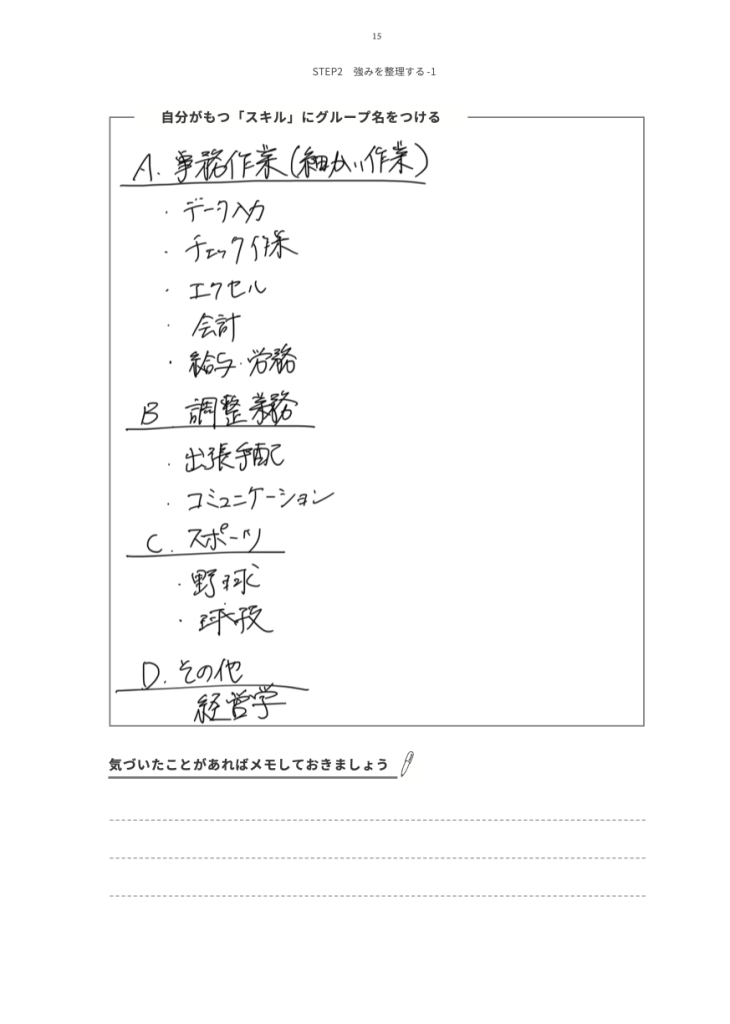 15
STEP2 強みを整理する -1
自分がもつ「スキル」にグループ名をつける
A. 事務作業(細かい作業)
・データ入力
・チェック作業
・エクセル
・会計
・給与・労務
B 調整業務
・出張手配
・コミュニケーション
C. スポーツ
・野球
・球技
D. その他
経営学
気づいたことがあればメモしておきましょう